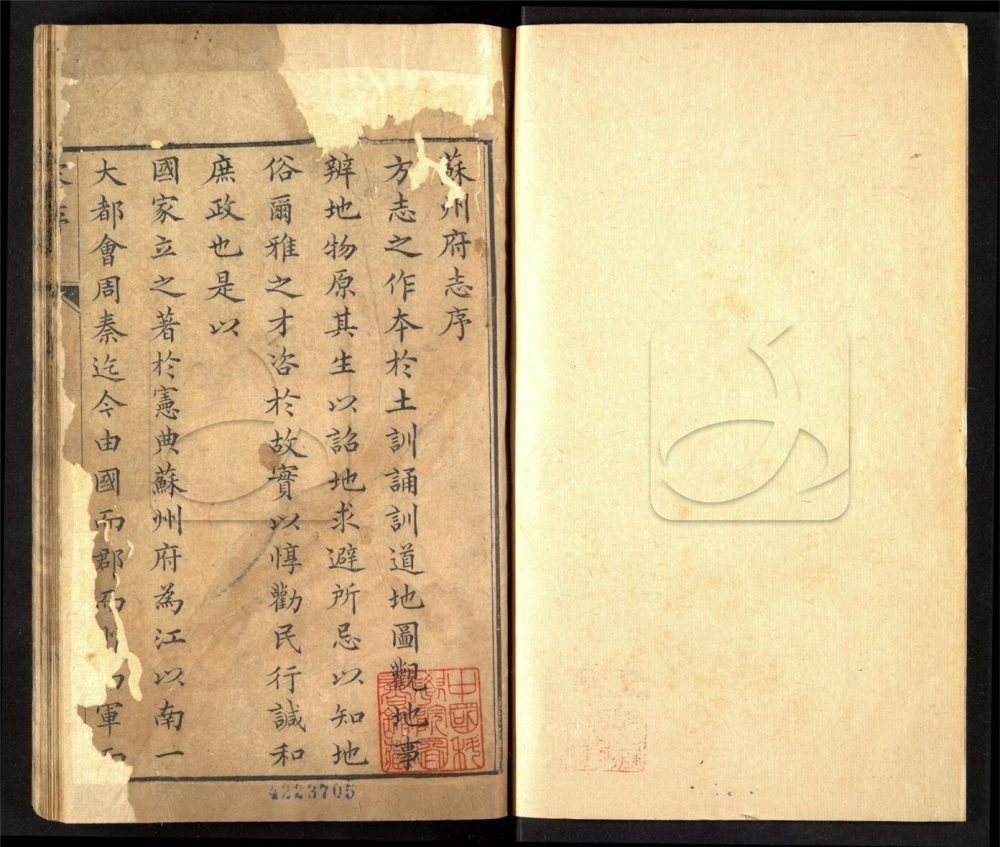 蘇州府志序
方志之作本於土訓誦訓道地圖觀地事
辨地物原其生以詔地求避所忌以知地
俗爾雅之才咨於故實以惇勸民行諴和
庶政也是以
國家立之著於憲典蘇州府為江以南一
大都會周秦迄今由國而郡而州而軍而
中國科學院圖書館藏
4223705